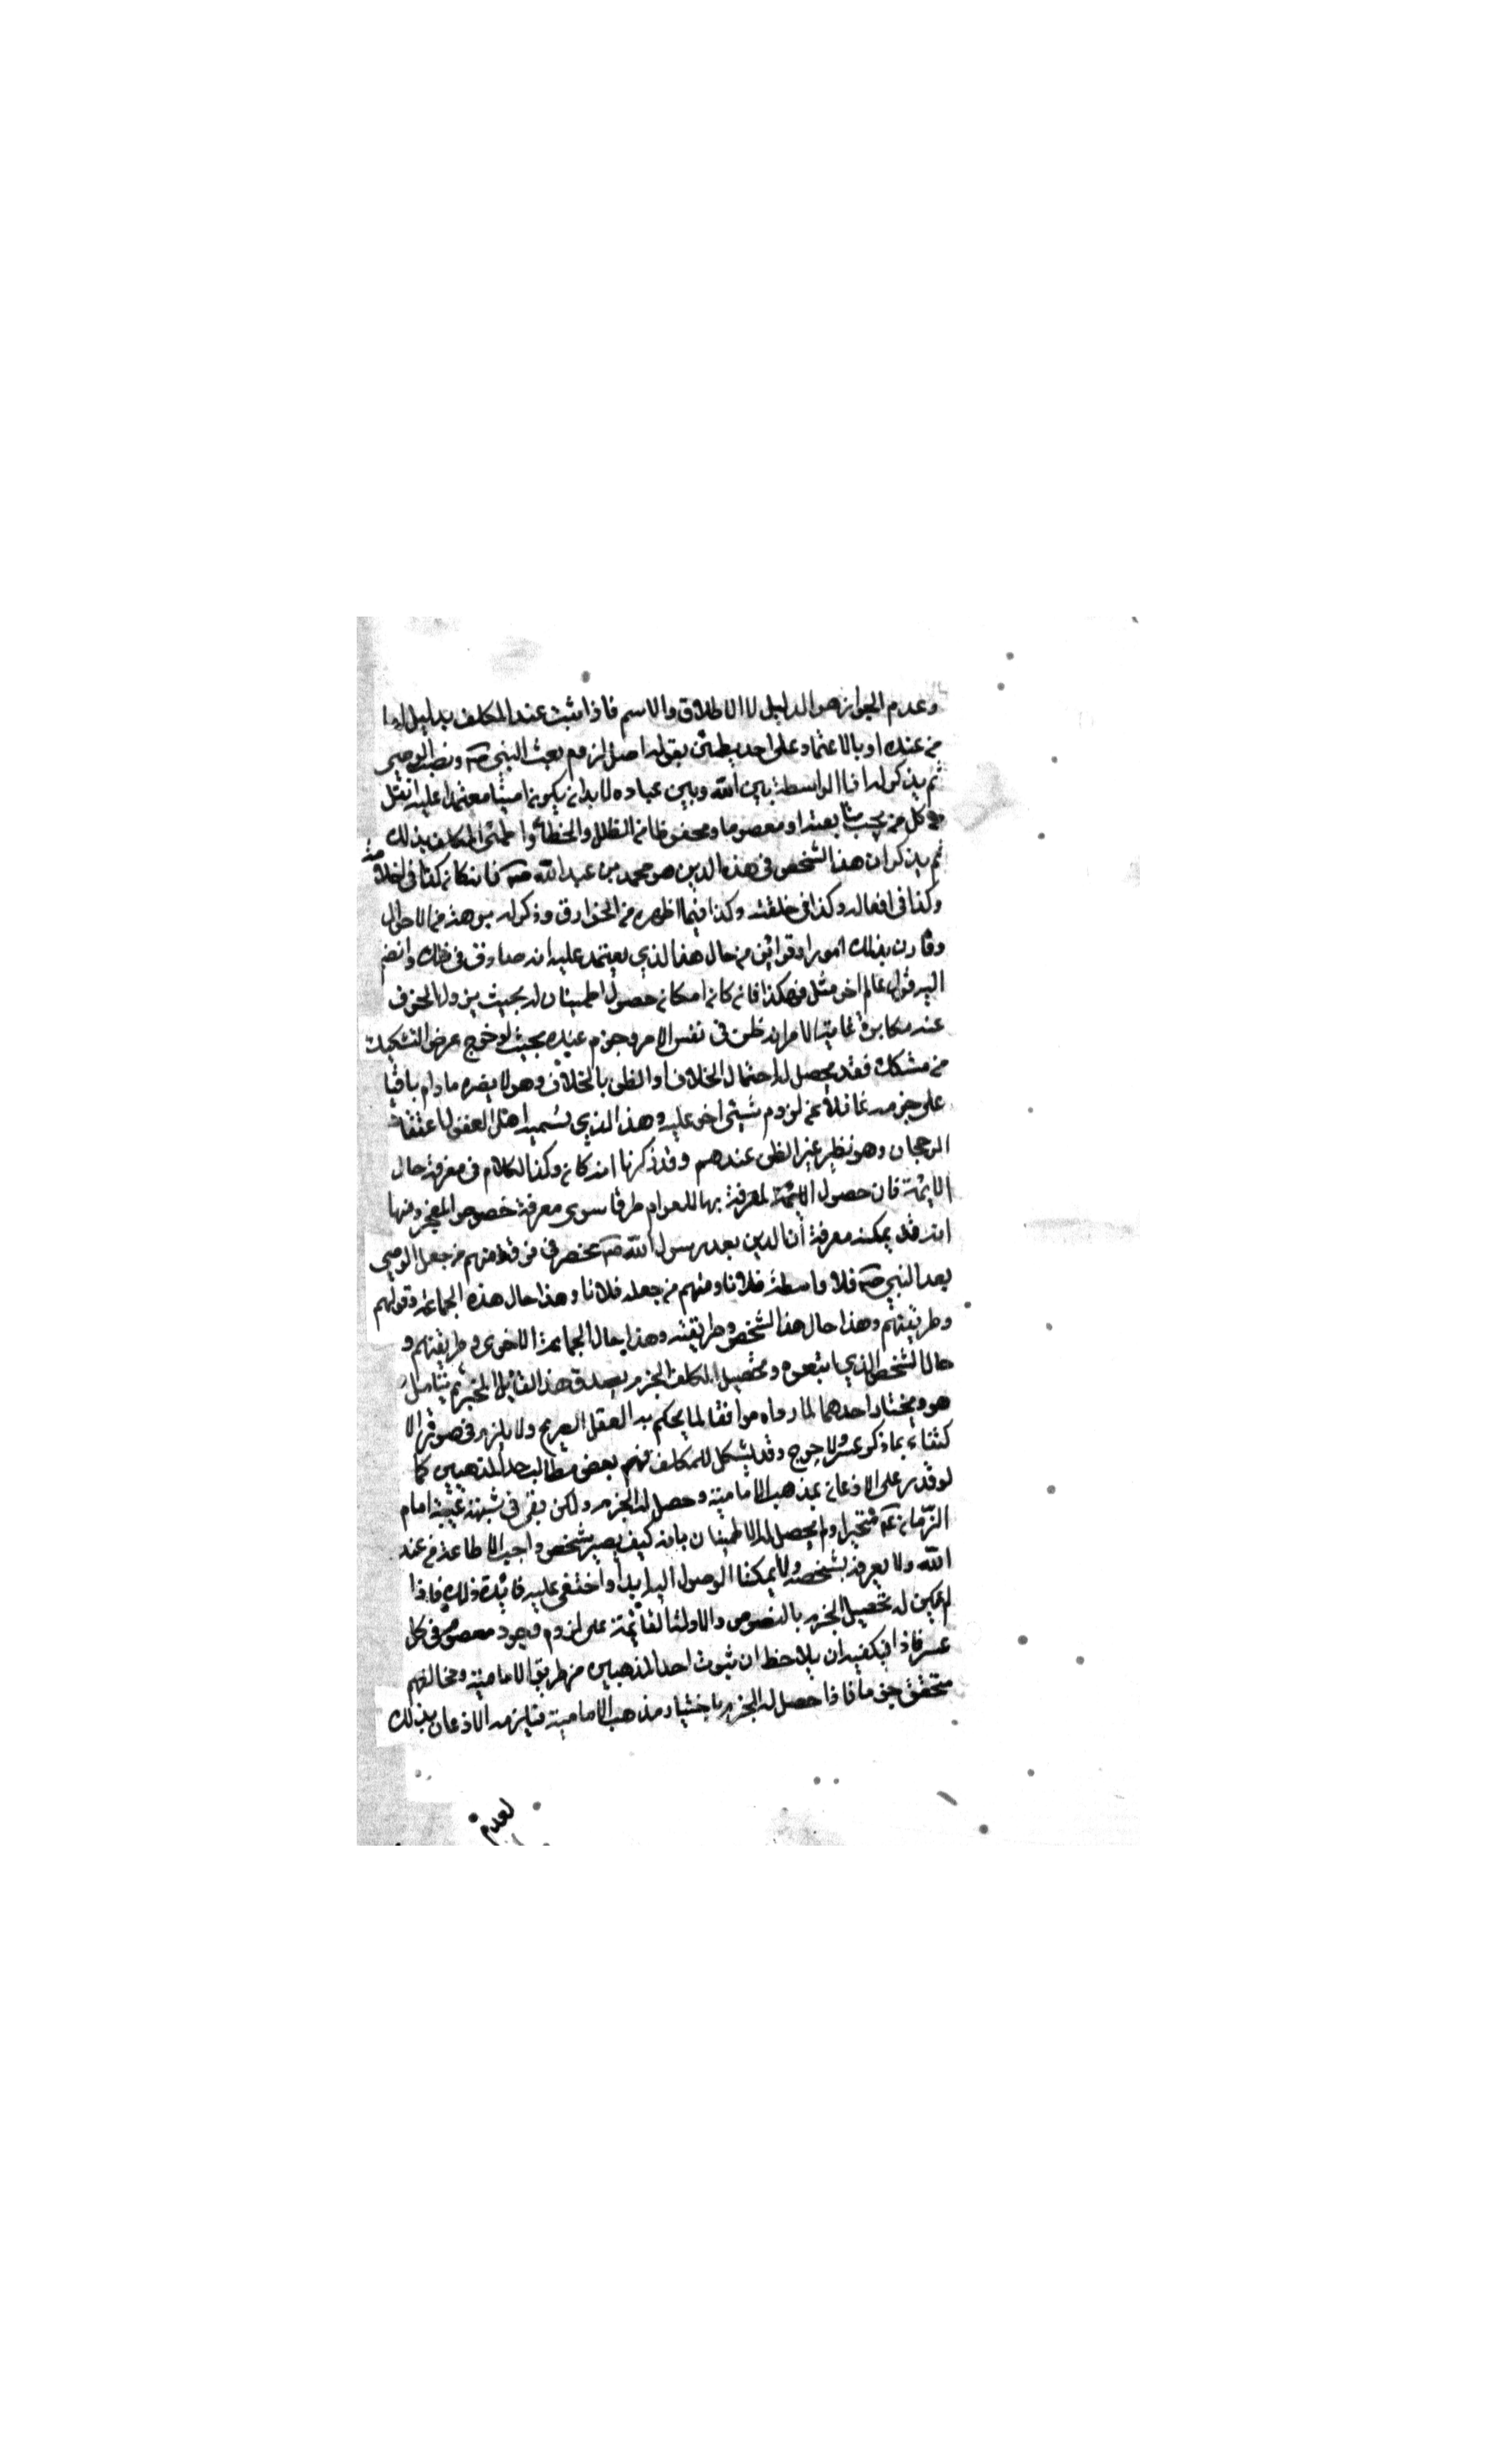 وعدم الجواز هو الدليل لا الاطلاق والاسم فاذا ثبت عند المكلف بدليل اما
من عنده او بالاعتماد على احد يطمئن بقوله اصل لزوم بعث النبي صه ونصب الوصي
ثم يذكر له ان الواسطة بين الله وبين عباده لا بد ان يكون امينا معتمدا عليه انتقل
كل من يجب متابعته او معصوما ومحفوظا من الظلل والخطأ واطمئن المكلف بذلك
ثم يذكر ان هذا الشخص في هذه الدين هو محمد بن عبد الله صه فانه كان كذا في اخلاقه
وكذا في افعاله وكذا في خلقته وكذا فيما اظهره من الخوارق وذكر له من الاحوال
وقارن بذلك امورا وقرائن من حال هذا الذي يعتمد عليه انه صادق في ذلك وانضم
اليه قول عالم اخر مثله وهكذا فانكار امكان حصول اطمينان له بحيث يزول الخوف
عنه مكابرة غاية الامر انه ظن في نفس الامر وجزم عنده بحيث لو خرج عرض التشكيك
من مشكك فقد يحصل له احتمال الخلاف او الظن بالخلاف وهو لا يضره ما دام باقيا
على جزمه غافلا عن لزوم شيئ اخر عليه وهذا الذي نسميه اهل العقول اعتقاد
الرجحان وهو نظير غير الظن عندهم وقد ذكرنا انه كان وكذا الكلام في معرفة حال
الائمة فان حصول الائمة لمعرفة بها للعوام طرقا سوى معرفة خصوص المعجز ومنها
انه قد يمكنه معرفة ان الدين بعد رسول الله صه منحصر في فرقة منهم من جعل الوصي
بعد النبي صه فلا واسطة فلانا ومنهم من جعله فلانا وهذا حال هذه الجماعة وقولهم
وطريقتهم وهذا حال هذا الشخص وطريقته وهذا حال الجماعة الاخرى وطريقتهم و
حال الشخص الذي اتبعوه وتحصيل المكلف الجزم بصدق هذا القائل المخبر ثم يتأمل
هو ويختار احدهما لما رواه موافقا لما يحكم به العقل الصريح ولا يلزم في صورة الا
كتفاء بما ذكر عسر ولا حرج وقد يشكل للمكلف فهم بعض مطالب احد المذهبين كما
لو قدر على الاذعان بمذهب الامامية وحصل له الجزم ولكن بقي في شبهة غيبة امام
الزمان عه متحيرا ولم يحصل له الاطمينان بانه كيف يصير شخص واجب الاطاعة من عند
الله ولا يعرف بشخصه ولا يمكننا الوصول اليه ابدا واختفى عليه فائدة ذلك فاذا
لم يمكن له تحصيل الجزم بالنصوص والادلة القائمة على لزوم وجود معصوم في كل
عصر فاذا فيكفيه ان يلاحظ ان ثبوت احد المذهبين من طريق الامامية ومخالفهم
متحقق جزما فاذا حصل له الجزم باختيار مذهب الامامية فيلزمه الاذعان بذلك
لعدم